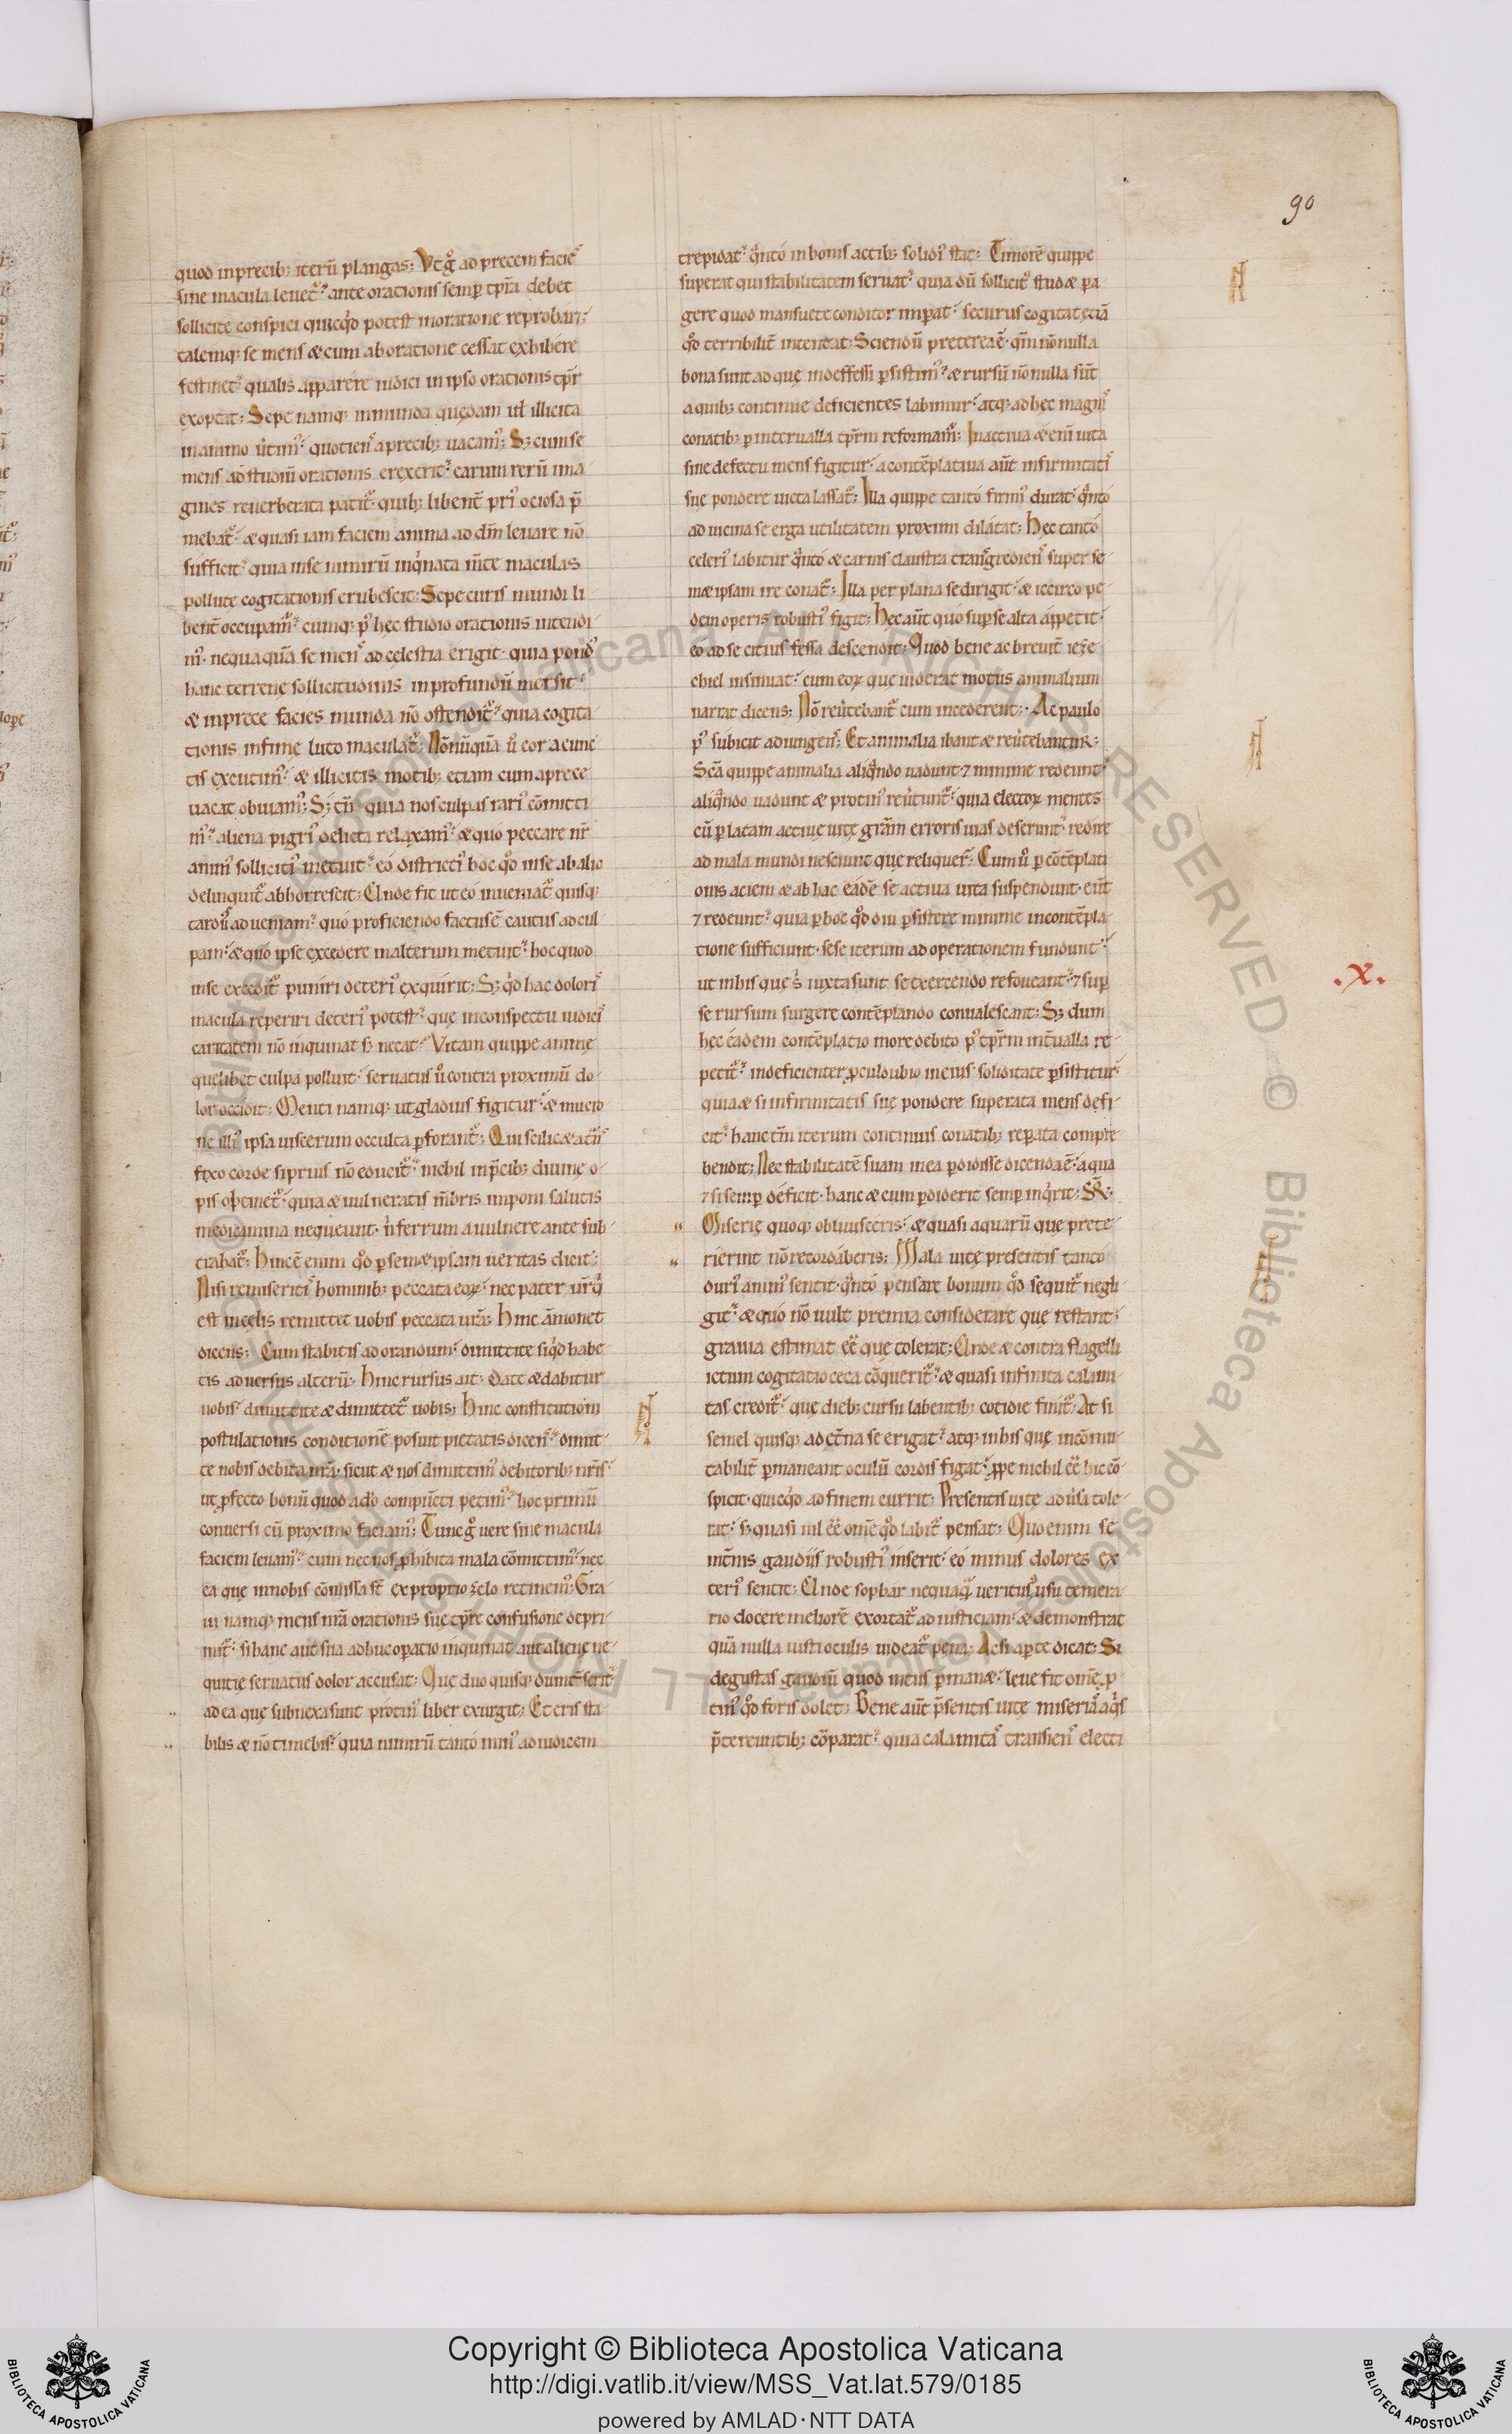 90
quod inprecib; iterū plangas; Vt g̊ ad precem facie᷒
sine macula leuet᷑. ante orationis semp̱ tp̄ra debet
sollicite conspici quicq̇d potest inoratione reprobari;
talemq; se mens & cum ab oratione cessat exhibére
festinet. qualis apparére iudici in ipso orationis tp̄r
exoptat; Sepe namq; inmunda quędam uł illicita
in animo uersam᷒. quotien᷒ a precib; uacam᷒; S; cum se
mens ad studiū orationis erexerit. earum rerū ima
gines reuerberata patit᷑. quib; libent̄ pri᷒ ociosa p̄
mebat᷑. & quasi iam faciem anima ad dm̄ leuare nō
sufficit. quia inse nimirū inq̇nata m̄te maculas
pollute cogitationis erubescit; Sepe curis mundi li
bent̄ occupam᷒. cumq; p᷒ hęc studio orationis intendi
m᷒. nequaquā se men᷒ ad celestia erigit. quia pond᷒
hanc terrene sollicitudinis inprofundū mersit.
& inprece facies munda nō ostendit᷑. quia cogita
tionis infime luto maculat᷑; Nōnūquā u᷒ cor a cunc
tis excutim᷒. & illicitis motib; etiam cum aprece
uacat obuiam᷒; S; tn̄ quia nos culpas rari᷒ cōmitti
m᷒. aliena pigri᷒ delicta relaxam᷒. & quo peccare nr̄
anim᷒ solliciti᷒ metuit. eó districti᷒ hoc qd̊ inse ab alio
delinquit᷑ abhorrescit; Unde fit ut eo inueniat᷑ quisq;
tardus ad ueniam. quó proficiendo factus ē cautus ad cul
pam. & quó ipse excedere inalterum metuit. hoc quod
inse excedit᷑ puniri deteri᷒ exquirit; S; q̇d hac dolori᷒
macula reperiri deteri᷒ potest. quę inconspectu iudici᷒
caritatem nō inquinat s; necat. Vitam quippe animę
quelibet culpa polluit. seruatus u᷒ contra proximū do-
lor occidit; Menti namq; ut gladius figitur. & mucro
ne illi᷒ ipsa uiscerum occulta p̱forant᷑; Qui scilic& a cn̄
fixo corde si prius nō educit᷑. nichil inp̄cib; diuinę o-
pis optinet᷑. quia & uulneratis m̄bris imponi salutis
medicamina nequeunt. n᷒ ferrum a uulnere ante sub-
trahat᷑; Hinc ē enim qd̊ p̱ sem&ipsam ueritas dicit;
Nisi remiseritis hominib; peccata eoꝝ. nec pater ur̄ q᷒
est incęlis remittet uobis peccata ur̄a; Hinc āmonet
dicens; Cum stabitis ad orandum. dimittite siq̇d habe
tis aduersus alterū; Hinc rursus ait; date & dabitur
uobis. dimittite & dimittet᷑ uobis; Hinc constitutioni
postulationis conditionē posuit pietatis dicen᷒. dimit-
te nobis debita nr̄a. sicut & nos dimittim᷒ debitorib; nr̄is.
ut ꝓfecto bonū quod a dō compūcti petim᷒. hoc primū
conuersi cū proximo faciam᷒; Tunc g̊ uere sine macula
faciem leuam᷒. cum nec nos ꝓhibita mala cōmittim᷒. nec
ea que innobis cōmissa st̄ ex proprio zelo retinem᷒; Gra
ui namq; mens nr̄a orationis suę tp̄re confusione depri-
mit᷑. si hanc aut sua adhuc op̱atio inquinat. aut alienę ne-
quitię seruatus dolor accusat; Quę duo quisq; dum t̄serit᷑
ad ea quę subnexa sunt protin᷒ liber exurgit; Et eris sta
bilis & nō timebis. quia nimirū tantó min᷒ ad iudicem
trepidat. q̊ntó in bonis actib; solidi᷒ stat; Timorē quippe
superat qui stabilitatem seruat. quia dū sollicit᷒ stud& pa-
gere quod mansuete conditor imp̱at. securus cogitat etiā
qd̊ terribilit̄ intentat; Sciendū preterea ē. qm̄ nōnulla
bona sunt ad quę indeffessi p̱sistim᷒. & rursū nōnulla sūt
a quib; continue deficientes labimur. atq; ad hęc magni᷒
conatib; p̱ interualla tp̄rm reformam᷒; In actiua & enī uita
sine defectu mens figitur. a contēplatiua aūt infirmitati᷒
suę pondere uicta lassat᷑; Illa quippe tantó firmi᷒ durat. q̊ntó
ad uicina se erga utilitatem proximi dilátat; Hęc tantó
celeri᷒ labitur q̊ntó & carnis claustra transgredien᷒ super se-
m&ipsam ire conat᷑; Illa per plana se dirigit. & iccirco pe-
dem operis robusti᷒ figit; Hęc aūt quó sup̱ se alta áppetit.
eó ad se citius fessa descendit; Quod bene ac breuit̄ ieze-
chiel insinuat. cum eoꝝ que uiderat motus animalium
narrat dicens; Nō reūtebant᷑ cum incederent; Ac paulo
p᷒ subicit adiungen᷒; Et animalia ibant & reūtebantur;
Scā quippe animalia aliq̊ndo uadunt ⁊ minime redeunt.
aliq̊ndo uadunt & protin᷒ reūtunt᷑. quia electoꝝ mentes
cū p̱ latam actiuę uitę grām erroris uias deserunt. redire
ad mala mundi nesciunt quę reliquer̄; Cum u᷒ p̱ cōtēplati
onis aciem & ab hac eádē se actiua uita suspendunt. eūt
⁊ redeunt. quia p̱ hoc qd̊ diu p̱sistere minime incontēpla-
tione sufficiunt. sese iterum ad operationem fundunt.
ut inhis quę s᷒ iuxta sunt se exercendo refoueant. ⁊ sup̱
se rursum surgere contēplando conualescant; S; dum
hęc éadem contēplatio more debito p᷒ tp̄rm int̄ualla re-
petit᷑. indeficienter ꝓculdubio ineius soliditate p̱sistitur.
quia & si infirmitatis suę pondere superata mens defi-
cit. hanc tm̄ iterum continuis conatib; rep̱ata compre
hendit; Nec stabilitatē suam inea p̱didisse dicenda ē. a qua
⁊ si semp̱ déficit. hanc & cum p̱diderit semp̱ inq᷒rit;
.x.
Miserię quoq; obliuisceris. & quasi aquarū quę prete-
rierint nō recordáberis; Mala uitę presentis tantó
duri᷒ anim᷒ sentit. q̊ntó pensare bonum qd̊ sequit᷑ negli
git. & quó nō uult premia considerare quę restant.
grauia estimat ēē quę tolerat; Unde & contra flagelli
ictum cogitatio ceca cōquerit᷑. & quasi infinita calami-
tas credit᷑. quę dieb; cursu labentib; cotidie finit᷑; At si
semel quisq; ad et̄na se erigat. atq; inhis quę incōmu-
tabilit̄ p̱maneant oculū cordis figat. ꝓpe nichil ēē hic cō-
spicit. quicq̇d ad finem currit; Presentis uitę aduersa tole-
rat. s; quasi nil ēē om̄e qd̊ labit᷑ pensat; Quo enim se
int̄nis gaudiis robusti᷒ inserit. eó minus dolores ex
teri᷒ sentit; Unde sophar nequaq̊ ueritus usu temera-
rio docere meliorē exortat᷑ ad iusticiam. & demonstrat
quā nulla iusti oculis uideat᷑ pena; Ac si ap̱te dicat; Si
degustas gaudiū quod intus p̱man&. leue fit om̄e ꝓ
tin᷒ qd̊ foris dolet; Bene aūt p̄sentis uitę miseriā aq᷒s
p̄tereuntib; cōparat. quia calamita᷒ transien᷒ electi
Copyright © Biblioteca Apostolica Vaticana
http://digi.vatlib.it/view/MSS_Vat.lat.579/0185
powered by AMLAD·NTT DATA
BIBLIOTECA APOSTOLICA VATICANA
BIBLIOTECA APOSTOLICA VATICANA